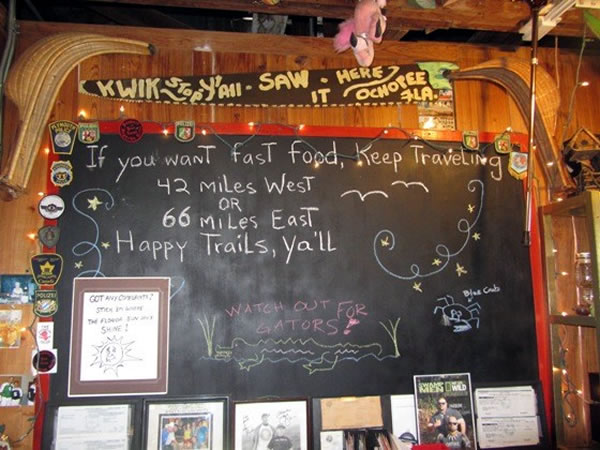 KWIK Stop Y'All - SAW IT HERE - OCHOPEE FLA.
If you want fast food, Keep Traveling
42 miles West
OR
66 miles East
Happy Trails, ya'll
WATCH OUT FOR
GATORS!
Blue Crab
GOT ANY COMPLAINTS?
STICK EM WHERE
THE FLORIDA SUN DON'T
SHINE!
SWAMP
MEN
WILD
POLIZEI